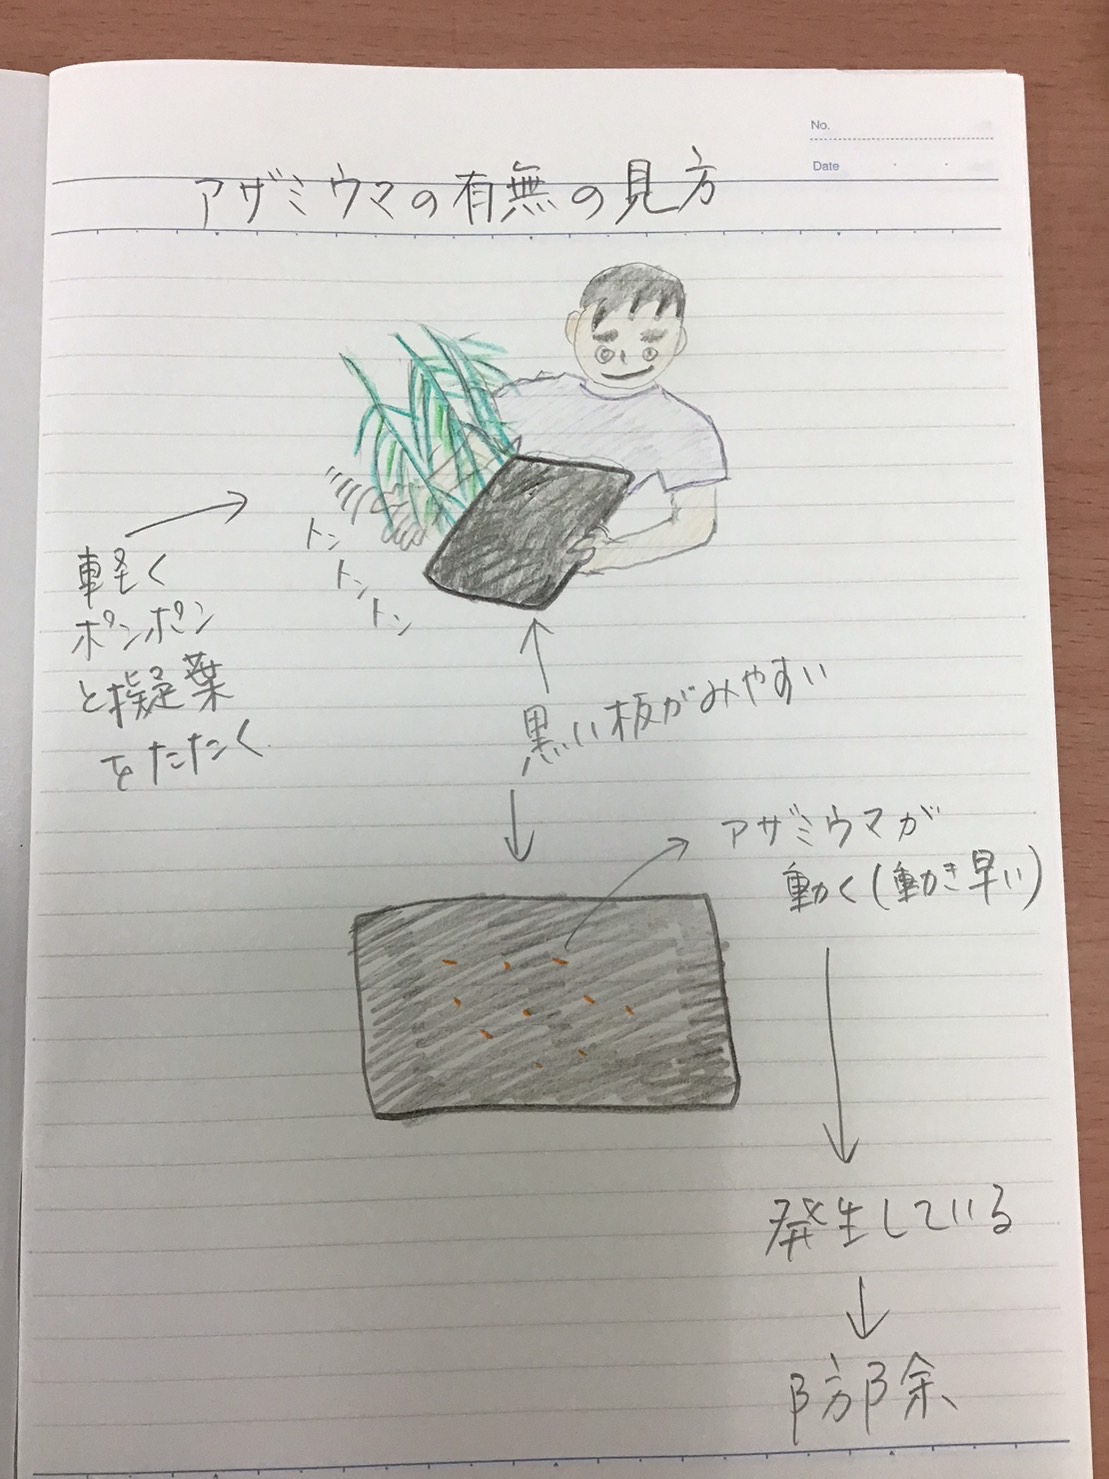 No.
Date
アザミウマの有無の見方
トン
トン
トン
軽く
ポンポン
と擬葉
をたたく
黒い板がみやすい
アザミウマが
動く(動き早い)
発生している
防除